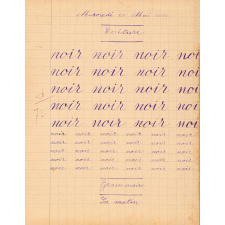 Mercredi Mai
Ecriture
noir noir noir noi
noir noir noir noi
noir noir noir noi
noir noir noir noi
noir noir noir noi
noir noir noir noir noir noir
noir noir noir noir noir noir
noir noir noir noir noir noir
noir noir noir noir noir noir
noir noir noir noir noir noir
Grammaire
Le matin